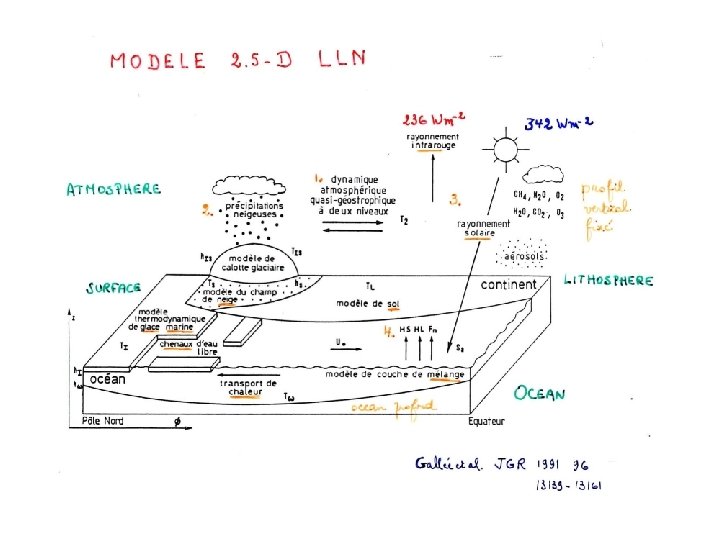 MODELE 2.5-D LLN
236 Wm-2
342 Wm-2
rayonnement
infrarouge
ATMOSPHERE
1. dynamique
atmosphérique
quasi-géostrophique
à deux niveaux
T2
2. précipitations
neigeuses
3.
rayonnement
solaire
CH4, N2O, O2
H2O, CO2, O3
profil
vertical
fixé
aérosols
hIs
TIs
modèle de
calotte glaciaire
SURFACE
Ts
hs
modèle du champ
de neige
TL
modèle de sol
continent
LITHOSPHERE
z
modèle
thermodynamique
de glace marine
TI
chenaux d'eau
libre
4. HS HL Fn
Sa
hI
océan
transport de
chaleur
modèle de couche de mélange
Tw
océan profond
OCEAN
Pôle Nord
ϕ
Equateur
Gallée et al. JGR 1991 96
13139-13161